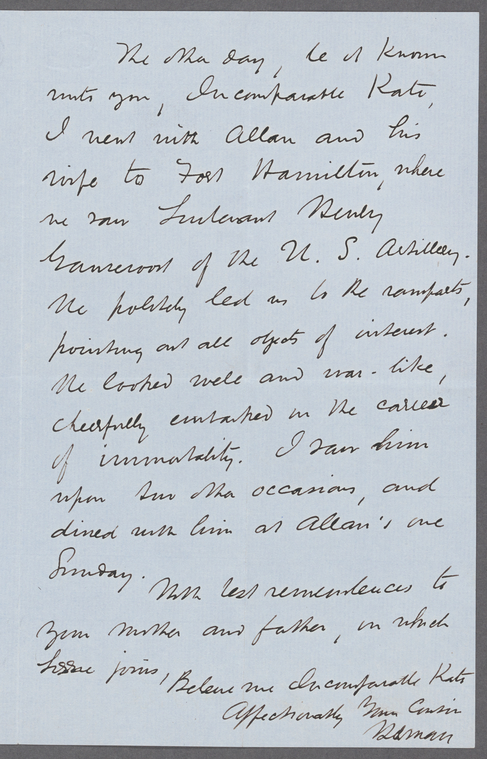 The other day, be it known
unto you, Incomparable Kate,
I went with Allan and his
wife to Fort Hamilton, where
we saw Lieutenant Henry
Gansevoort of the U. S. Artillery.
He politely led us to the ramparts,
pointing out all objects of interest.
He looked well and war-like,
cheerfully embarked in the career
of immortality. I saw him
upon two other occasions, and
dined with him at Allan's one
Sunday.
With best remembrances to
your mother and father, in which
Lizzie joins,
Believe me Incomparable Kate
Affectionately Your Cousin
Herman